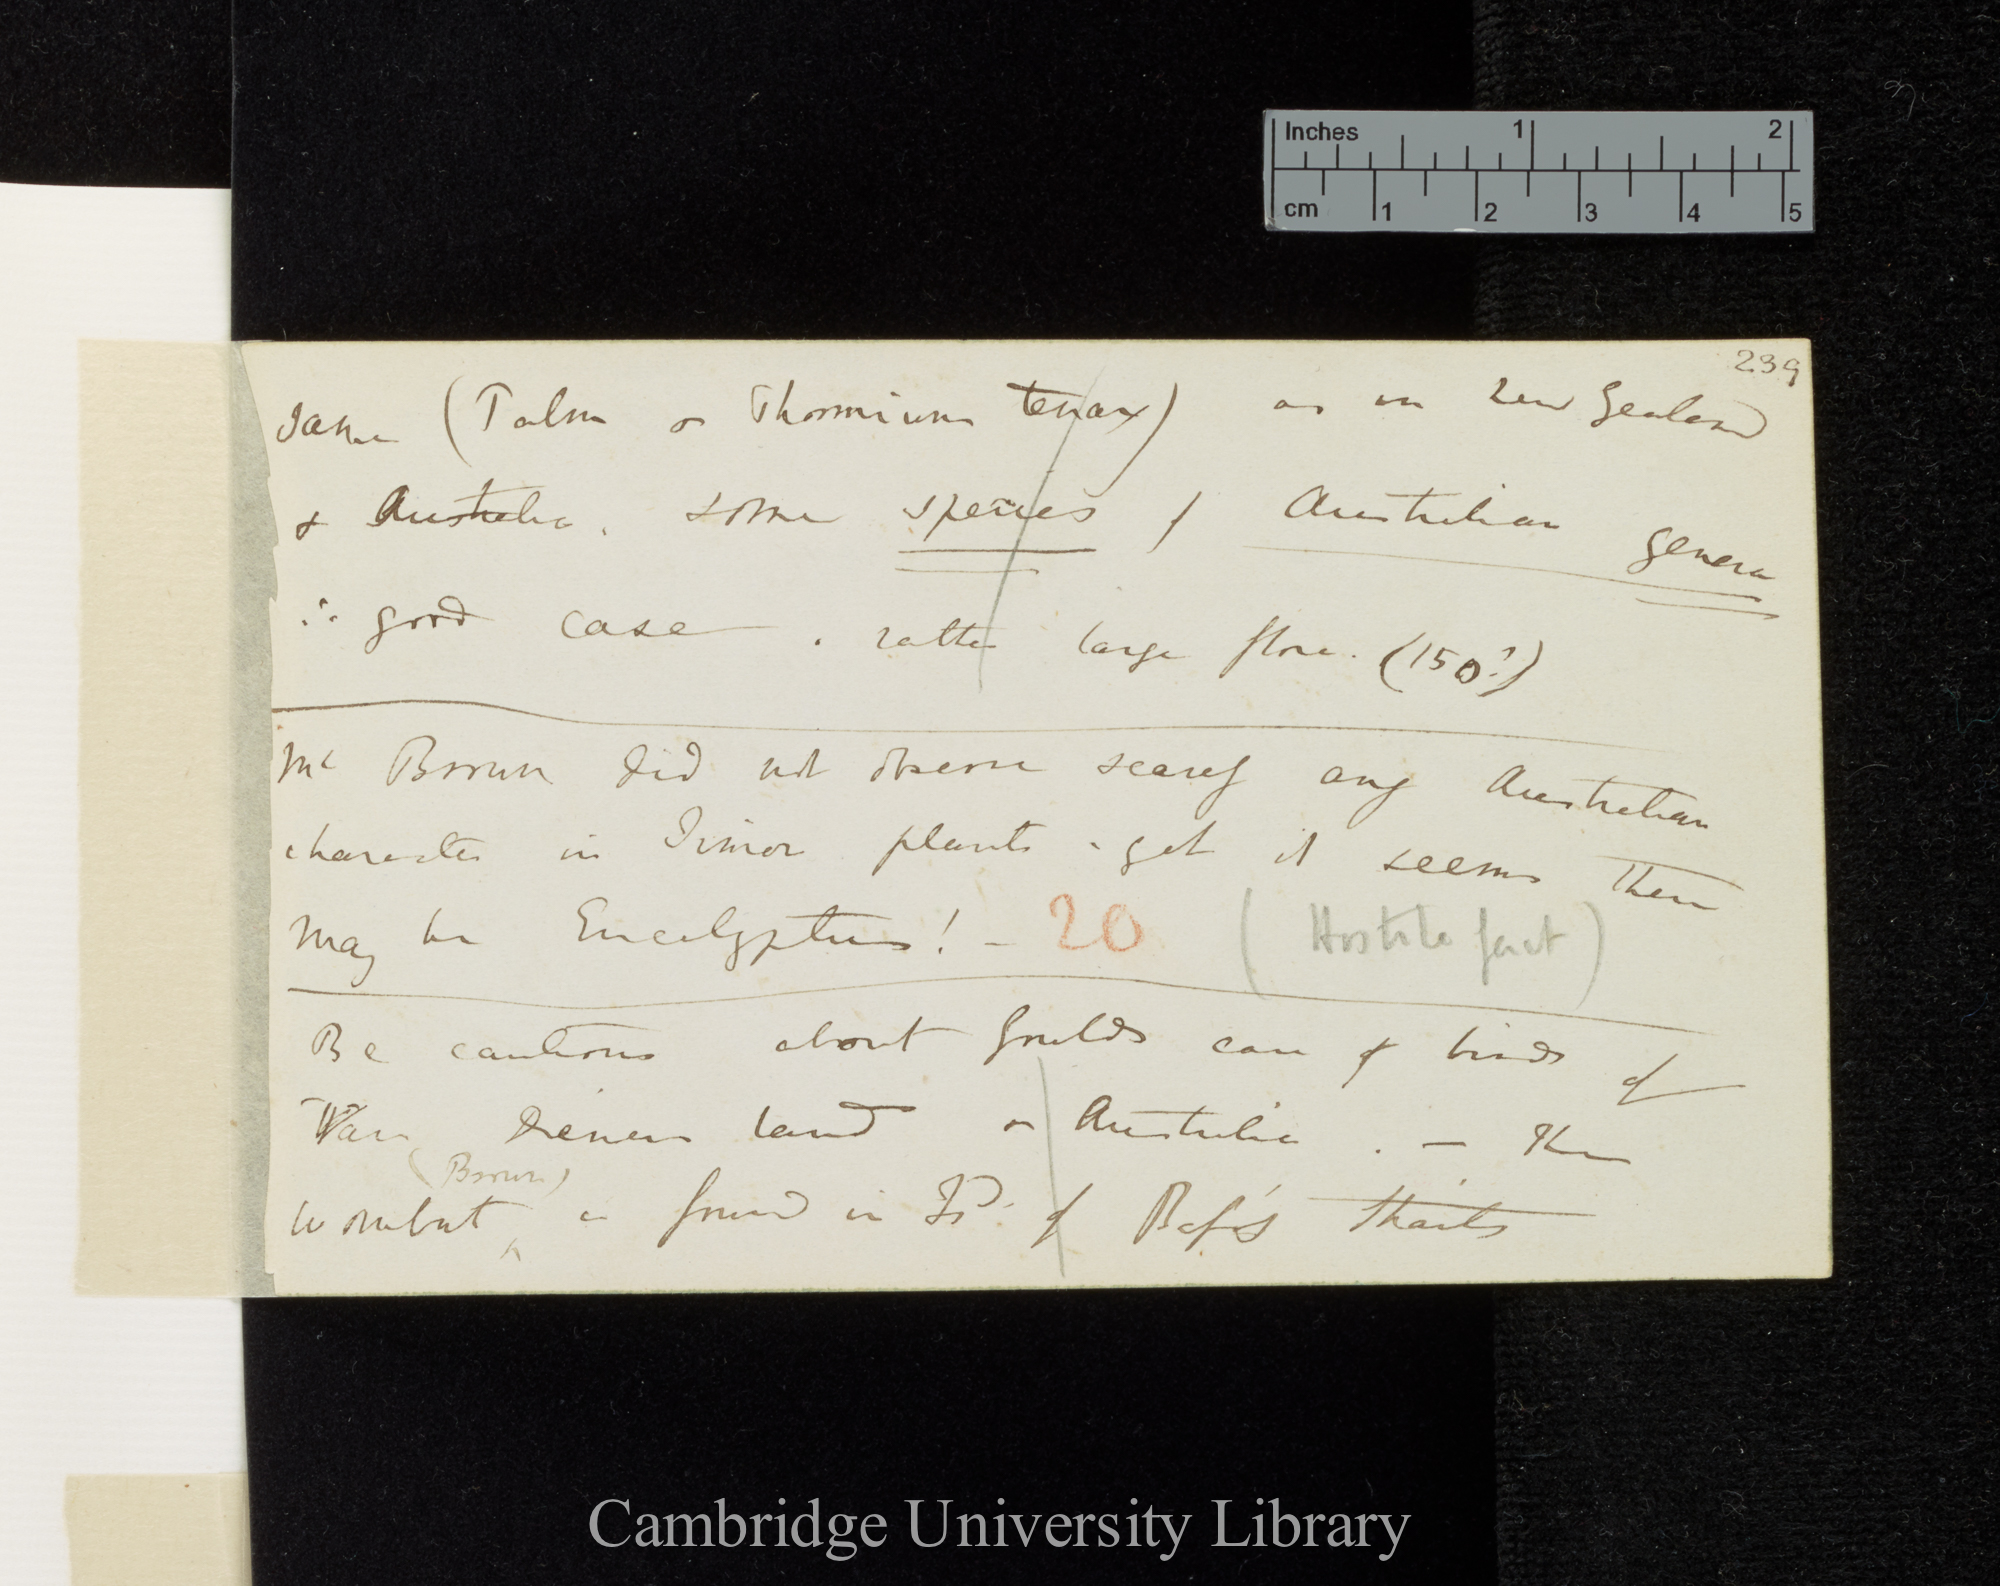 Inches 1 2
cm 1 2 3 4 5
239
same (Palm & Phormium tenax) as in New Zealand
& Australia. some species of Australian genera
∴ good case . rather large flora. (150?)
Mr Brown did not observe scarcely any Australian
character in Timor plants . yet it seems there
may be Eucalyptus! — 20 (Hostile fact)
Be cautious about Goulds case of birds of
Van Diemen land & Australia . — The
(Brown)
wombat ^ is found in Isd. of Bass's Straits
Cambridge University Library